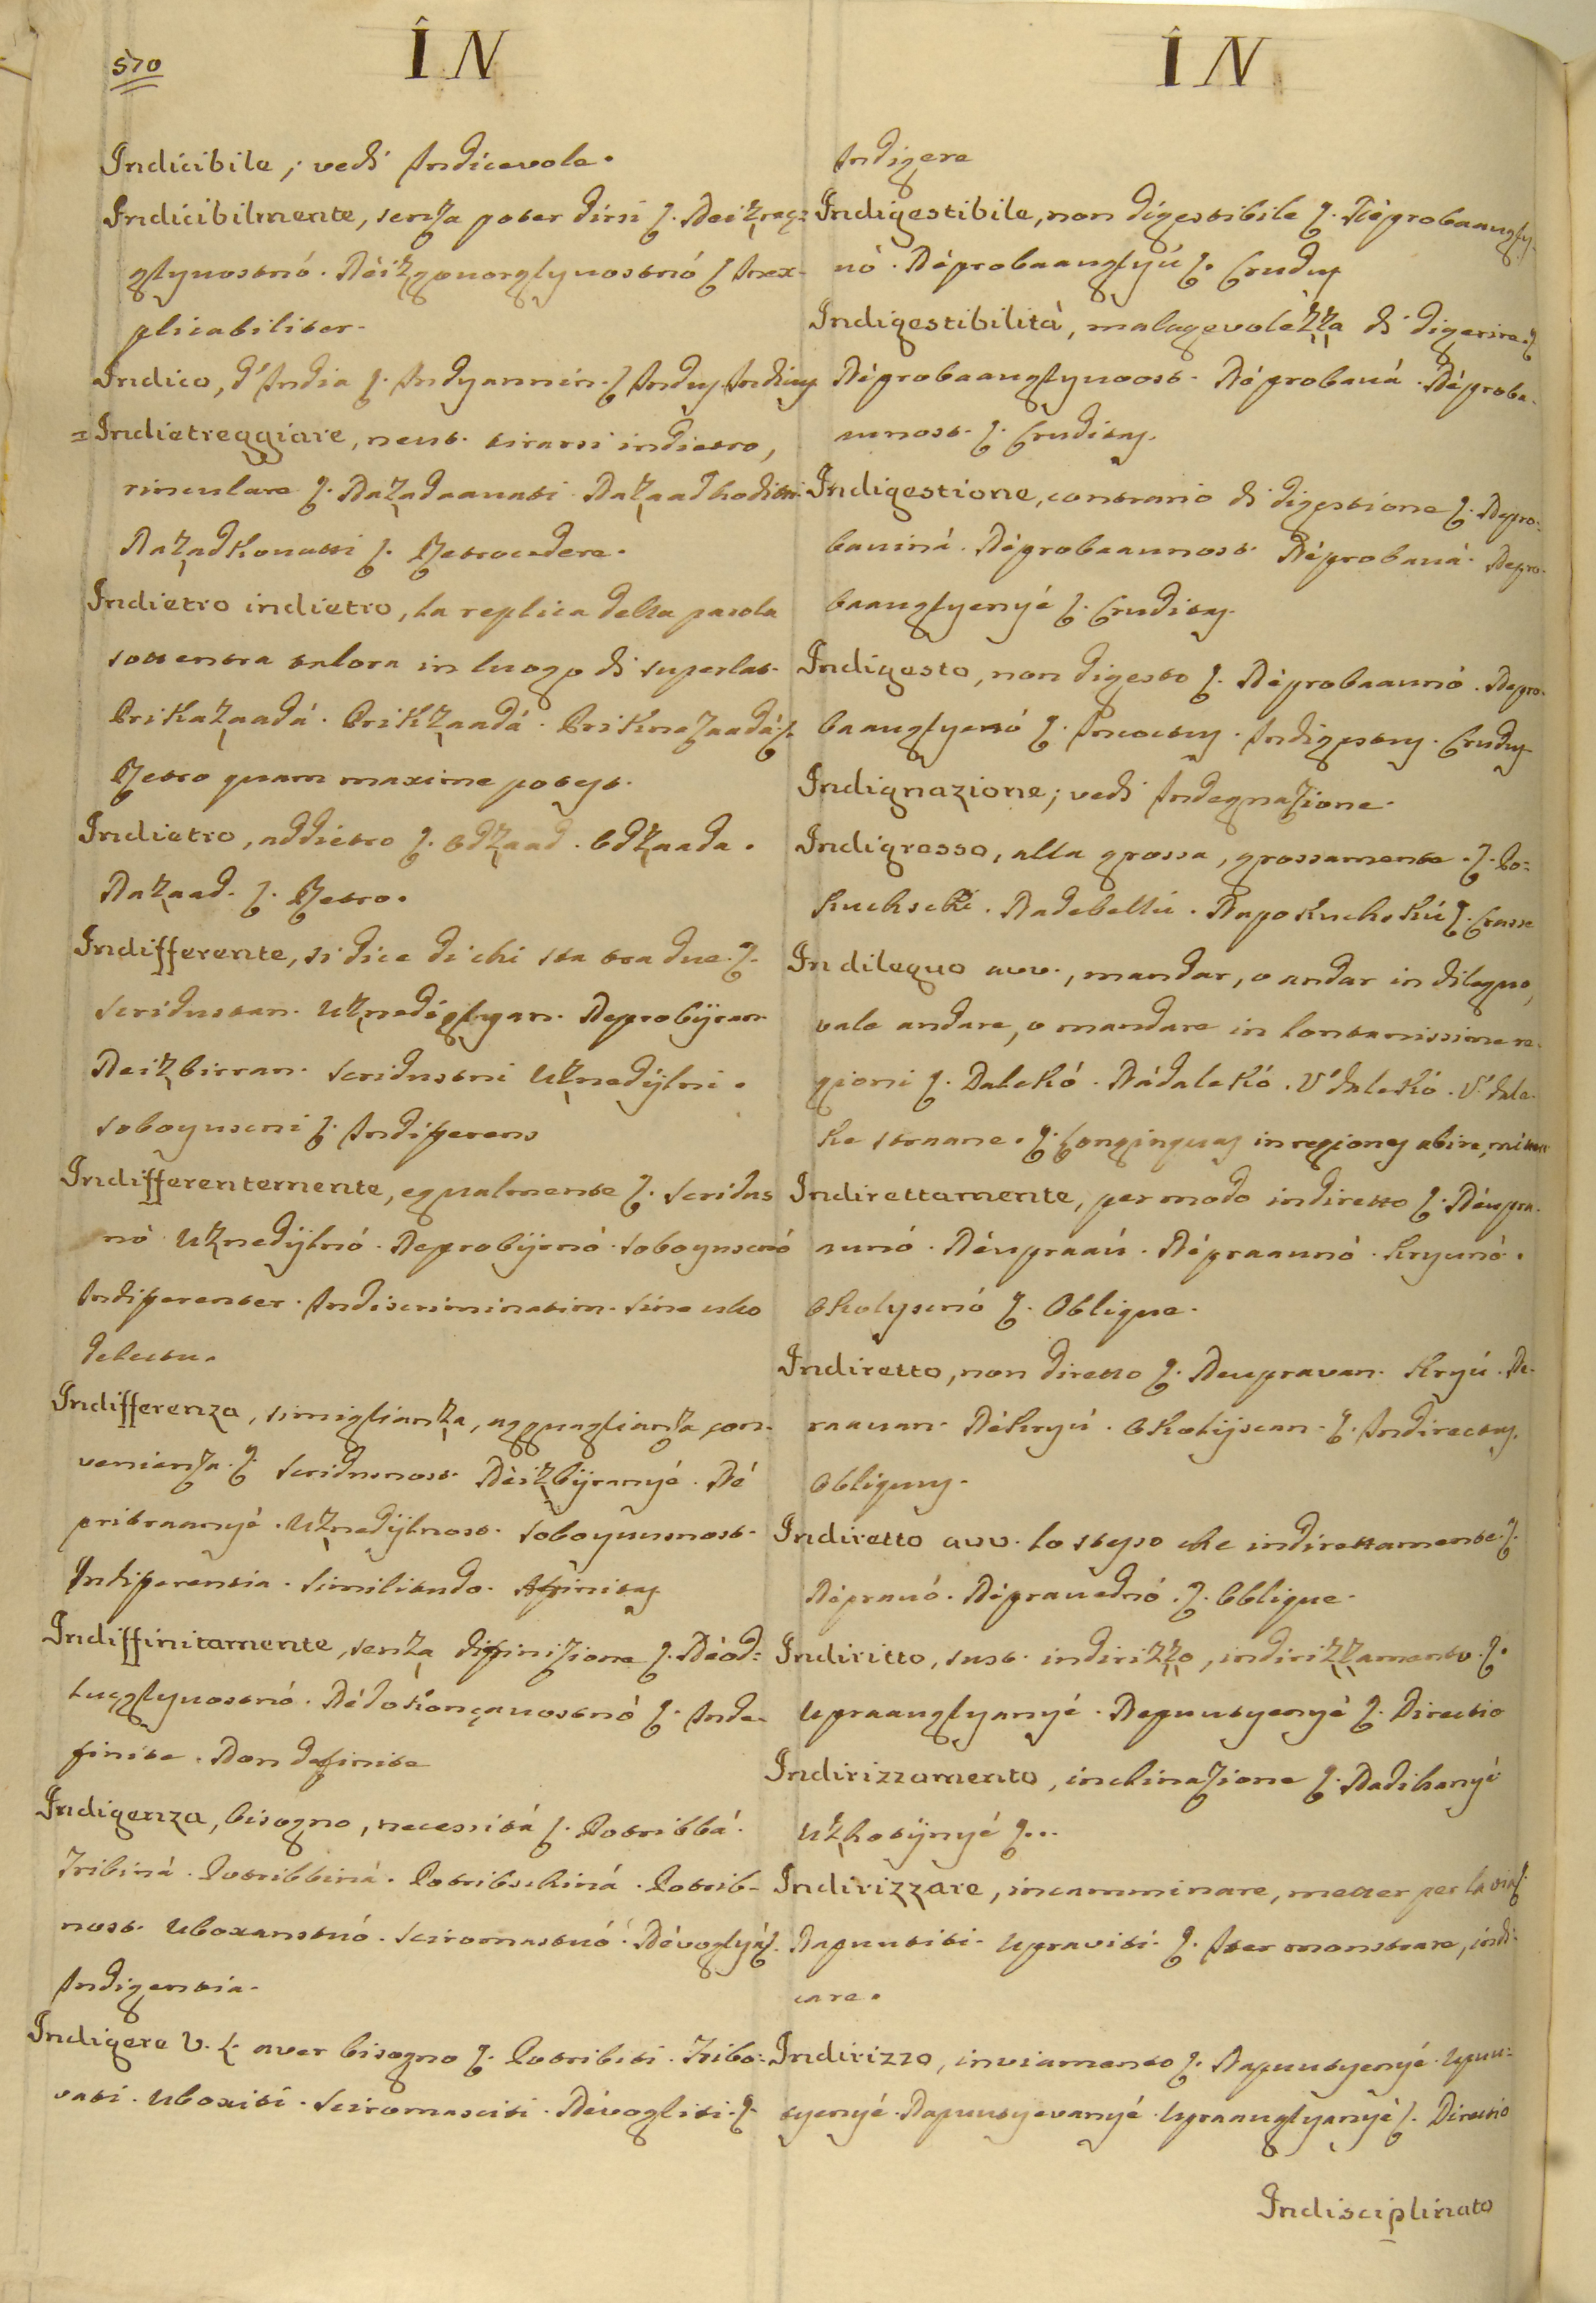 570
ÎN
ÎN
Indicibile; vedi Indicevole.
Indicibilmente, senza poter dirsi
glyuostnó. Inex-
plicabiliter.
Indico, d'India Indyannin. Indus Indicus
Indietreggiare, neut. tirarsi indietro,
rinculare Nazadaavati Nazaadhoditi
Nazadkovatti Retrocedere.
Indietro indietro, la replica della parola
sottentra talora in luogo di superlat.
Prikazaadá. Prikzaadá. Priknazaadá
Retro quam maxime potest.
Indietro, addietro Odzaad. Odzaada.
Nazaad. Retro.
Indifferente, si dice di chi sta tra due.
Scridustan. Uznedéglyan. Neprobÿran
Neizbirran. Scridustni Uznedÿlni.
Indifferens
Indifferentemente, egualmente Scridus
nó Uznedÿlnó. Neprobÿrnó.
Indifferenter. Indiscriminatim. Sine ullo
delectu.
Indifferenza, simiglianza, agguaglianza, con-
venienza. Scridusnost. Néizbÿranyé. Né
pribraanyé. Uznedÿlnost.
Indifferentia. Similitudo. Affinitas
Indiffinitamente, senza diffinizione Néod=
luçglyuostnó. Nédokonçauostnó Inde-
finite. Non definite
Indigenza, bisogno, necessitá Potribbá.
Tribiná. Potribbiná. Potribschiná. Potrib-
nost. Uboxanstuó. Sciromastuó. Névoglyá
Indigentia.
Indigere V. L. aver bisogno Potribiti. Tribo=
vati. Uboxiti. Sciromasciti. Névogliti.
Indigere
Indigestibile, non digestibile Néprobaaugly-
nó. Néprobaauglyú Crudus
Indigestibilità, malagevolezza di digerire.
Néprobaauglyuost. Néprobauá. Néproba-
unost. Cruditas.
Indigestione, contrario di digestione Nepro-
bauiná. Néprobaaunost. Néprobauá. Nepro-
baauglyenyé Cruditas.
Indigesto, non digesto Néprobaaunó. Nepro-
baauglyenó Incoctus. Indigestus. Crudus
Indignazione; vedi Indegnazione.
Indigrosso, alla grossa, grossamente. Po=
kuchski. Nadebellú. Napokuchskú Crasse
Indileguo avv., mandar, o andar in dileguo,
vale andare, o mandare in lontanissime re-
gioni Dalekó. Nádalekó. V'dalekó. V'dale-
ke straane. Longinquas in regiones abire, mittere
Indirettamente, per modo indiretto Néupra-
uunó. Néupraaú. Népraaunó. Kryunó.
Okolyscnó Oblique.
Indiretto, non diretto Neupravan. Kryú. Ne-
raauan. Nékryú. Okolijscan. Indirectus.
Obliquus.
Indiretto avv. lo stesso che indirettamente.
Néprauó. Néprauednó. Oblique.
Indiritto, sust. indirizzo, indirizzamento.
Upraauglyanyé. Naputyenyé Directio
Indirizzamento, inclinazione Nadihanyé
Uzhotÿnyé ...
Indirizzare, incamminare, metter per la via
Napuutiti. Upraviti. Iter monstrare, indi-
care.
Indirizzo, inviamento Napuutyenyé. Upuu=
tyenyé. Napuutyevanyé. Upraauglyanyé Directio
Indisciplinato